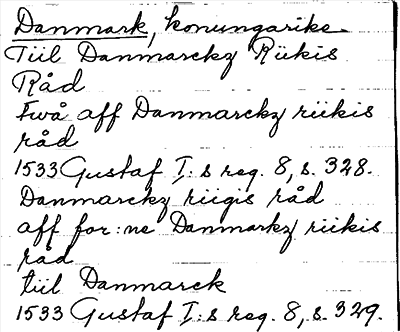 Danmark, konungarike.
Tiil Danmarckz Riikis
Råd
Twå aff Danmarckz riikis
råd
1533 Gustaf I:s reg. 8, s. 328.
Danmarckz riigis råd
aff for:ne Danmarkz riikis
råd
tiil Danmarck
1533 Gustaf I:s reg. 8, s. 329.